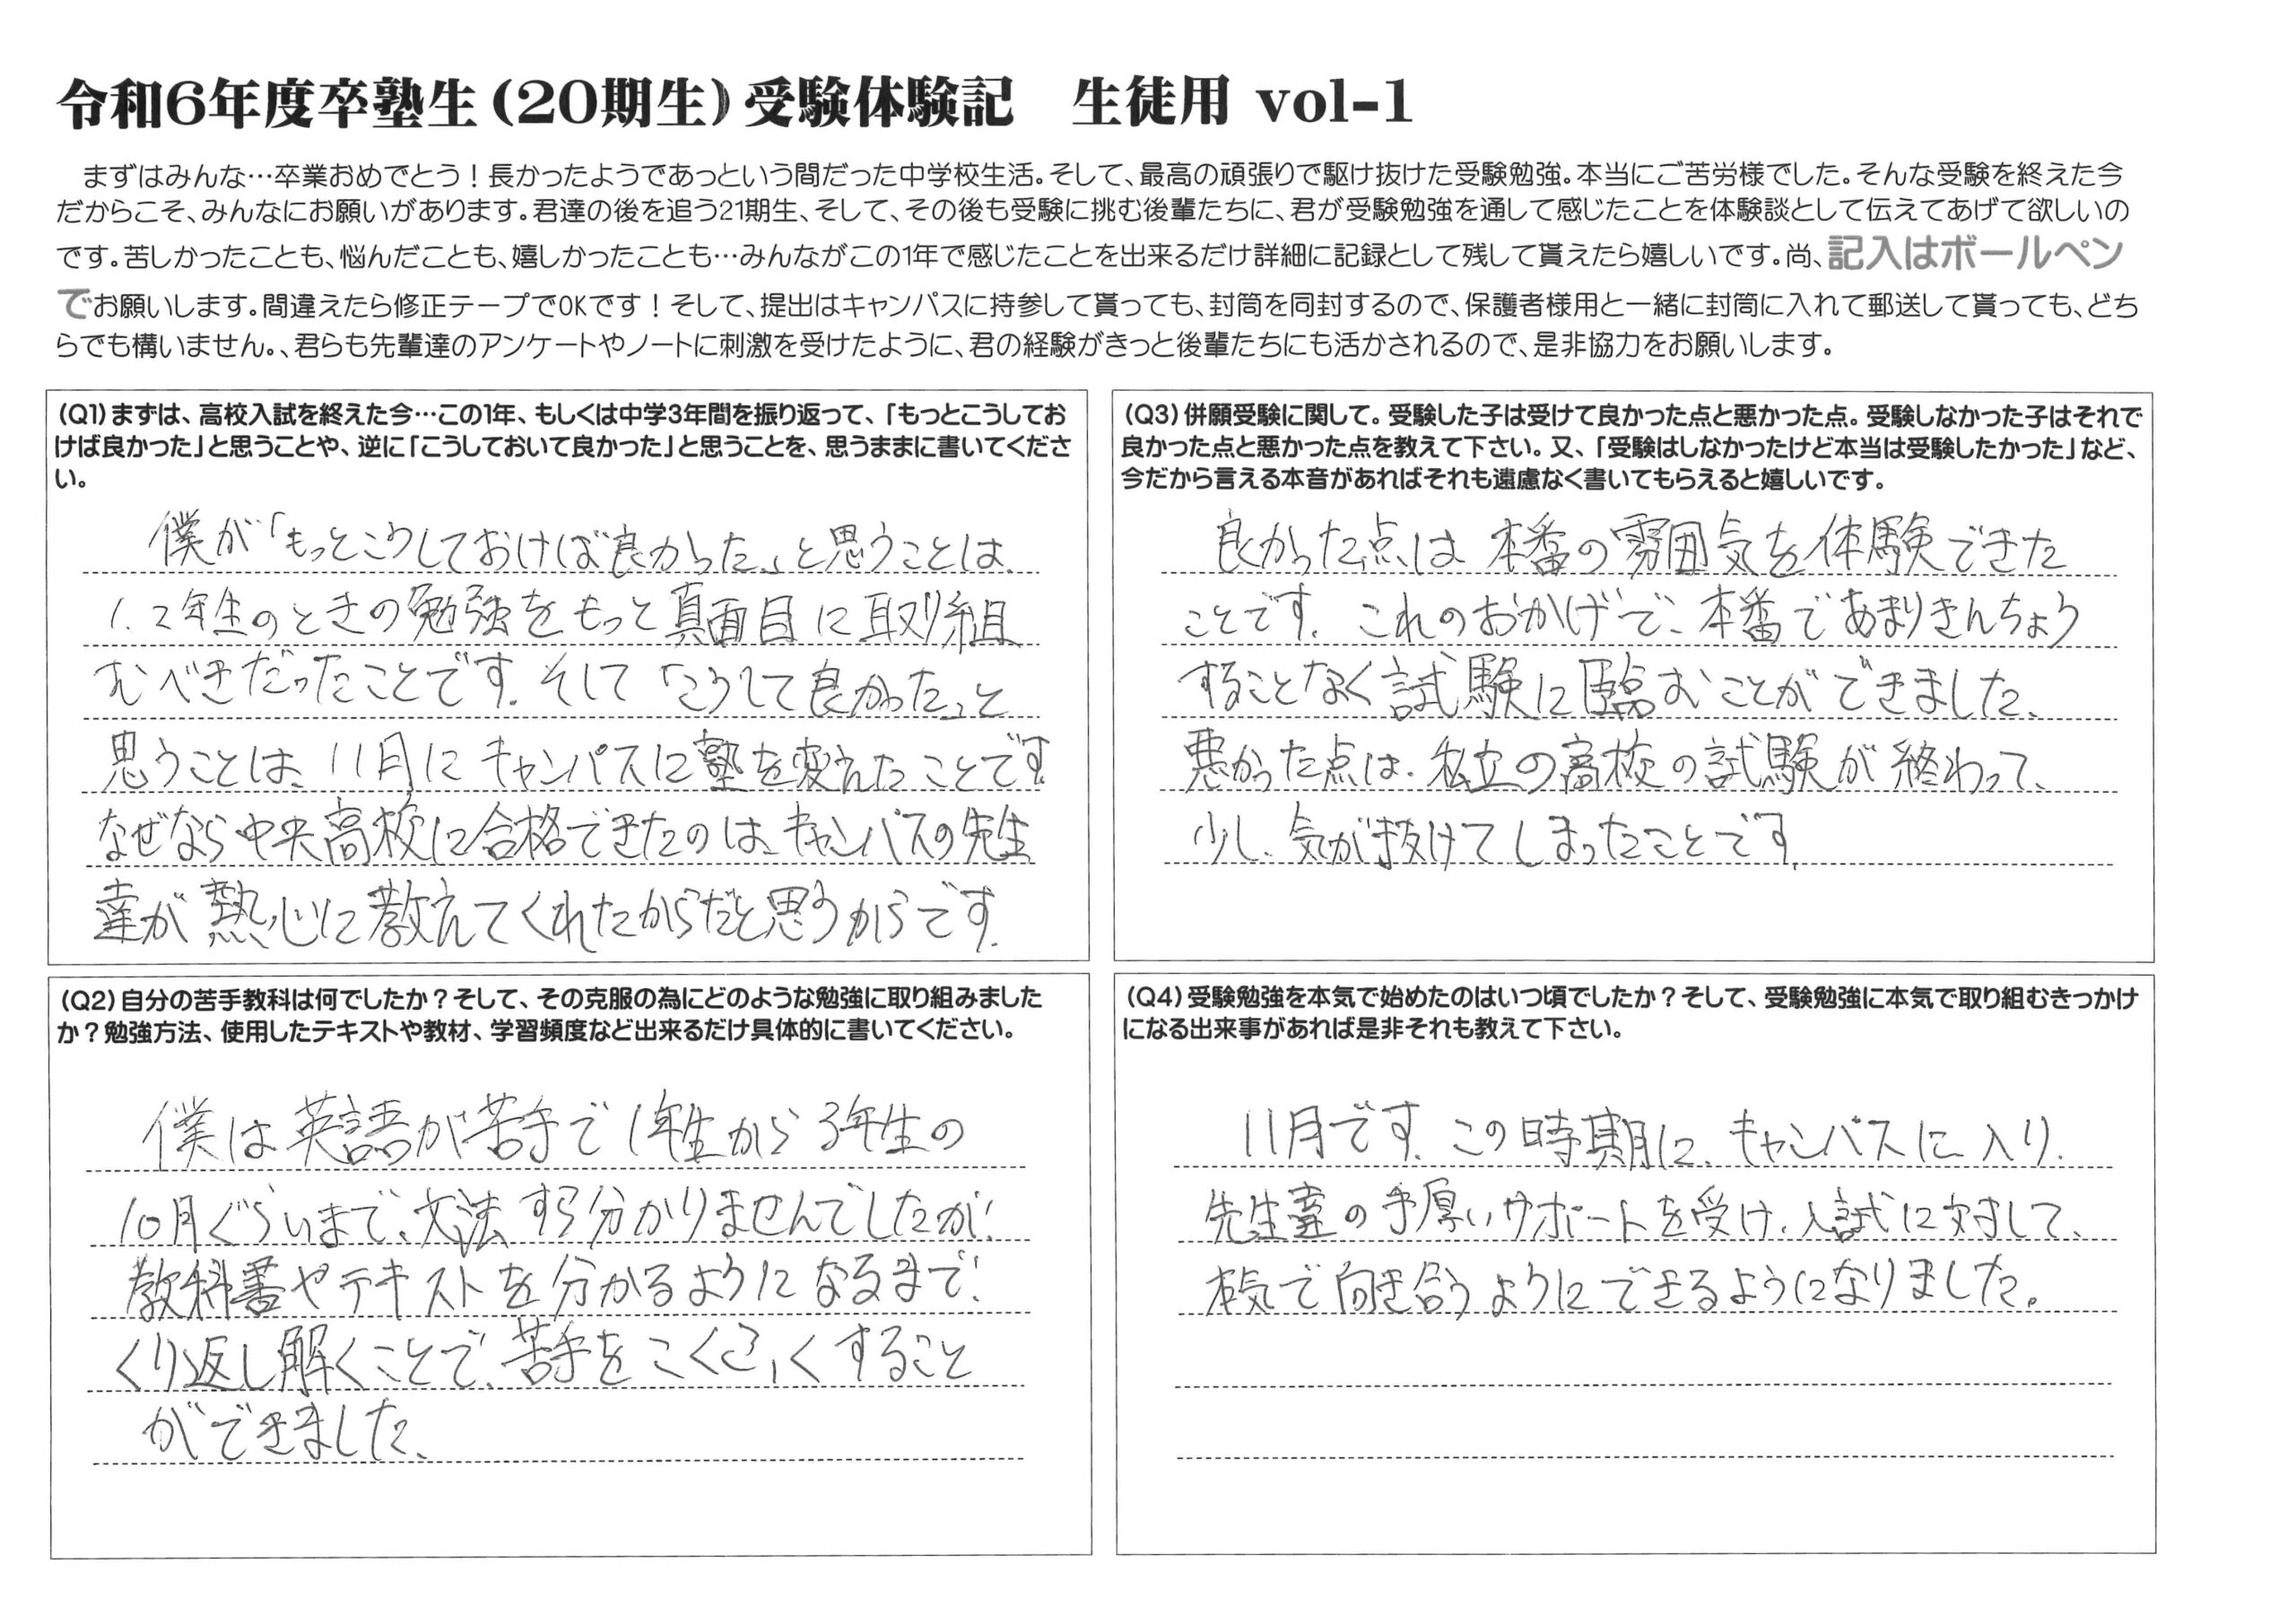 令和6年度卒塾生(20期生)受験体験記　生徒用 vol-1
まずはみんな…卒業おめでとう！長かったようであっという間だった中学校生活。そして、最高の頑張りで駆け抜けた受験勉強。本当にご苦労様でした。そんな受験を終えた今
だからこそ、みんなにお願いがあります。君達の後を追う21期生、そして、その後も受験に挑む後輩たちに、君が受験勉強を通して感じたことを体験談として伝えてあげて欲しいの
です。苦しかったことも、悩んだことも、嬉しかったことも…みんながこの1年で感じたことを出来るだけ詳細に記録として残して貰えたら嬉しいです。尚、記入はボールペン
でお願いします。間違えたら修正テープでOKです！そして、提出はキャンパスに持参して貰っても、封筒を同封するので、保護者様用と一緒に封筒に入れて郵送して貰っても、どち
らでも構いません。、君らも先輩達のアンケートやノートに刺激を受けたように、君の経験がきっと後輩たちにも活かされるので、是非協力をお願いします。
(Q1)まずは、高校入試を終えた今…この1年、もしくは中学3年間を振り返って、「もっとこうしてお
けば良かった」と思うことや、逆に「こうしておいて良かった」と思うことを、思うままに書いてくださ
い。
僕が「もっとこうしておけば良かった」と思うことは、
1、2年生のときの勉強をもっと真面目に取り組
むべきだったことです。そして「こうして良かった」と
思うことは、11月にキャンパスに塾を変えたことです。
なぜなら中央高校に合格できたのは、キャンパスの先生
達が熱心に教えてくれたからだと思うからです。
(Q2)自分の苦手教科は何でしたか？そして、その克服の為にどのような勉強に取り組みました
か？勉強方法、使用したテキストや教材、学習頻度など出来るだけ具体的に書いてください。
僕は英語が苦手で1年生から3年生の
10月ぐらいまで、文法すら分かりませんでしたが、
教科書やテキストを分かるようになるまで、
くり返し解くことで、苦手をこくふくすること
ができました、
(Q3)併願受験に関して。受験した子は受けて良かった点と悪かった点。受験しなかった子はそれで
良かった点と悪かった点を教えて下さい。又、「受験はしなかったけど本当は受験したかった」など、
今だから言える本音があればそれも遠慮なく書いてもらえると嬉しいです。
良かった点は本番の雰囲気を体験できた
ことです。これのおかげで、本番であまりきんちょう
することなく試験に臨むことができました、
悪かった点は、私立の高校の試験が終わって、
少し、気が抜けてしまったことです。
(Q4)受験勉強を本気で始めたのはいつ頃でしたか？そして、受験勉強に本気で取り組むきっかけ
になる出来事があれば是非それも教えて下さい。
11月です。この時期に、キャンパスに入り、
先生達の手厚いサポートを受け、入試に対して、
本気で向き合うようにできるようになりました。